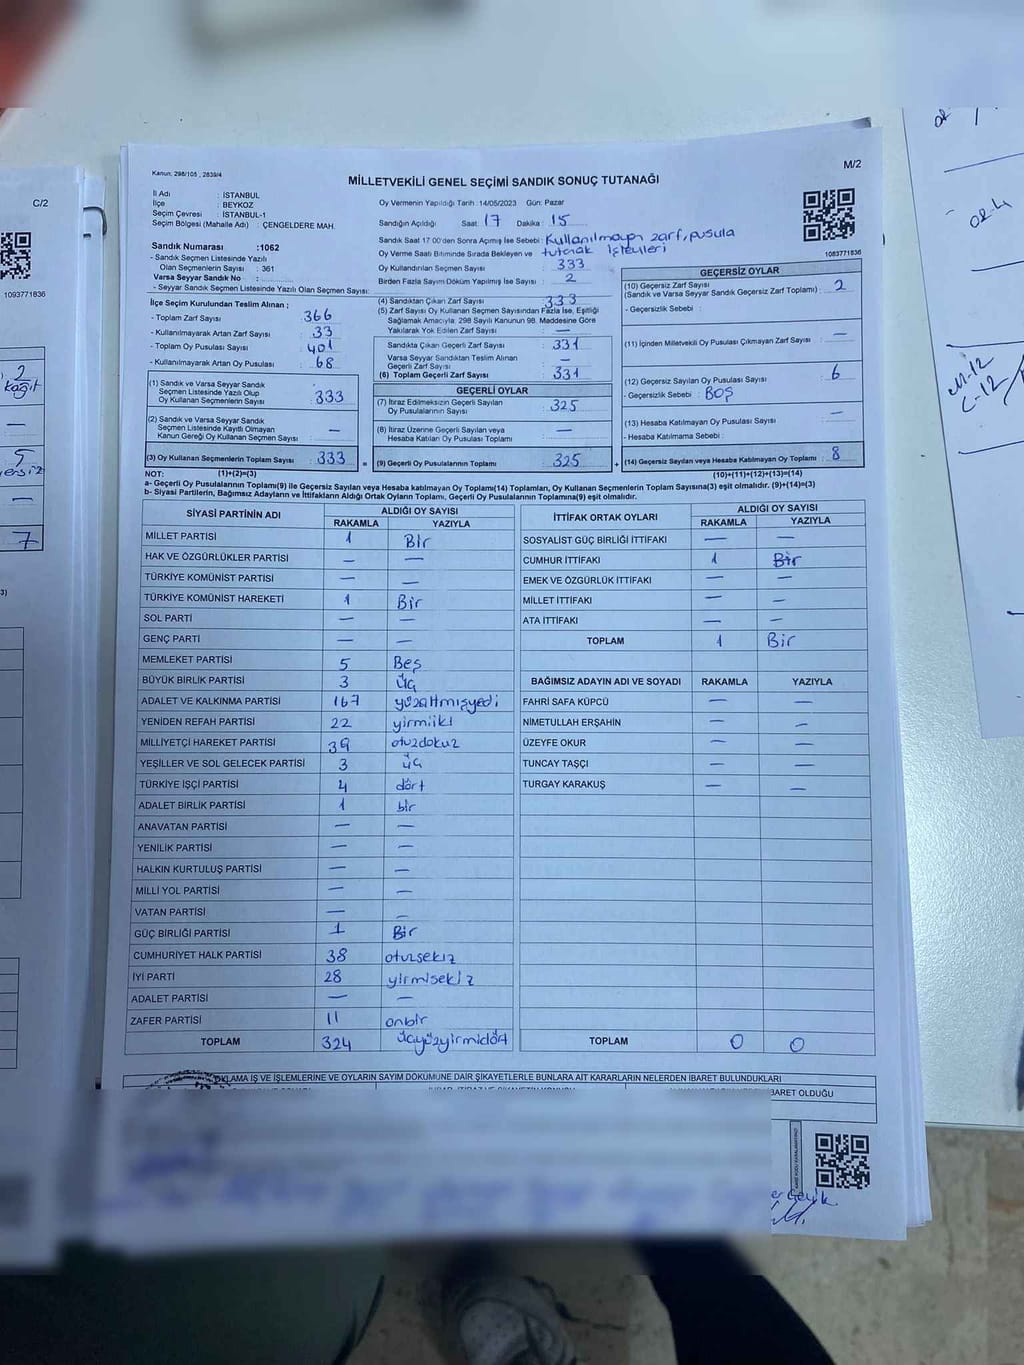 C/2
1093771836
2
kağıt
5
7
Kanun; 298/105 , 2839/4
M/2
MİLLETVEKİLİ GENEL SEÇİMİ SANDIK SONUÇ TUTANAĞI
İl Adı : İSTANBUL
İlçe : BEYKOZ
Seçim Çevresi : İSTANBUL-1
Seçim Bölgesi (Mahalle Adı) : ÇENGELDERE MAH.
Oy Vermenin Yapıldığı Tarih :14/05/2023 Gün: Pazar
Sandığın Açıldığı Saat: 17 Dakika : 15
Sandık Saat 17:00'den Sonra Açılmış İse Sebebi : Kullanılmayan zarf, pusula
Oy Verme Saati Bitiminde Sırada Bekleyen ve tutanak işlemleri
Oy Kullandırılan Seçmen Sayısı : 333
Birden Fazla Sayım Döküm Yapılmış İse Sayısı : 2
1083771836
Sandık Numarası :1062
- Sandık Seçmen Listesinde Yazılı
Olan Seçmenlerin Sayısı : 361
Varsa Seyyar Sandık No :
- Seyyar Sandık Seçmen Listesinde Yazılı Olan Seçmen Sayısı:
İlçe Seçim Kurulundan Teslim Alınan ;
- Toplam Zarf Sayısı : 366
- Kullanılmayarak Artan Zarf Sayısı : 33
- Toplam Oy Pusulası Sayısı : 401
- Kullanılmayarak Artan Oy Pusulası : 68
(1) Sandık ve Varsa Seyyar Sandık
Seçmen Listesinde Yazılı Olup
Oy Kullanan Seçmenlerin Sayısı : 333
(2) Sandık ve Varsa Seyyar Sandık
Seçmen Listesinde Kayıtlı Olmayan
Kanun Gereği Oy Kullanan Seçmen Sayısı : —
(3) Oy Kullanan Seçmenlerin Toplam Sayısı : 333
(1)+(2)=(3)
(4) Sandıktan Çıkan Zarf Sayısı : 333
(5) Zarf Sayısı Oy Kullanan Seçmen Sayısından Fazla İse, Eşitliği
Sağlamak Amacıyla; 298 Sayılı Kanunun 98. Maddesine Göre
Yakılarak Yok Edilen Zarf Sayısı : —
Sandıkta Çıkan Geçerli Zarf Sayısı : 331
Varsa Seyyar Sandıktan Teslim Alınan
Geçerli Zarf Sayısı : —
(6) Toplam Geçerli Zarf Sayısı : 331
GEÇERLİ OYLAR
(7) İtiraz Edilmeksizin Geçerli Sayılan
Oy Pusulalarının Sayısı : 325
(8) İtiraz Üzerine Geçerli Sayılan veya
Hesaba Katılan Oy Pusulası Toplamı : —
= (9) Geçerli Oy Pusulalarının Toplamı : 325
GEÇERSİZ OYLAR
(10) Geçersiz Zarf Sayısı
(Sandık ve Varsa Seyyar Sandık Geçersiz Zarf Toplamı) : 2
- Geçersizlik Sebebi :
(11) İçinden Milletvekili Oy Pusulası Çıkmayan Zarf Sayısı : —
(12) Geçersiz Sayılan Oy Pusulası Sayısı : 6
- Geçersizlik Sebebi : BOŞ
(13) Hesaba Katılmayan Oy Pusulası Sayısı : —
- Hesaba Katılmama Sebebi :
+ (14) Geçersiz Sayılan veya Hesaba Katılmayan Oy Toplamı : 8
(10)+(11)+(12)+(13)=(14)
NOT:
a- Geçerli Oy Pusulalarının Toplamı(9) ile Geçersiz Sayılan veya Hesaba katılmayan Oy Toplamı(14) Toplamları, Oy Kullanan Seçmenlerin Toplam Sayısına(3) eşit olmalıdır. (9)+(14)=(3)
b- Siyasi Partilerin, Bağımsız Adayların ve İttifakların Aldığı Ortak Oyların Toplamı, Geçerli Oy Pusulalarının Toplamına(9) eşit olmalıdır.
SİYASİ PARTİNİN ADI ALDIĞI OY SAYISI
RAKAMLA YAZIYLA
MİLLET PARTİSİ 1 Bir
HAK VE ÖZGÜRLÜKLER PARTİSİ — —
TÜRKİYE KOMÜNİST PARTİSİ — —
TÜRKİYE KOMÜNİST HAREKETİ 1 Bir
SOL PARTİ — —
GENÇ PARTİ — —
MEMLEKET PARTİSİ 5 Beş
BÜYÜK BİRLİK PARTİSİ 3 üç
ADALET VE KALKINMA PARTİSİ 167 yüzaltmışyedi
YENİDEN REFAH PARTİSİ 22 yirmiiki
MİLLİYETÇİ HAREKET PARTİSİ 39 otuzdokuz
YEŞİLLER VE SOL GELECEK PARTİSİ 3 üç
TÜRKİYE İŞÇİ PARTİSİ 4 dört
ADALET BİRLİK PARTİSİ 1 bir
ANAVATAN PARTİSİ — —
YENİLİK PARTİSİ — —
HALKIN KURTULUŞ PARTİSİ — —
MİLLİ YOL PARTİSİ — —
VATAN PARTİSİ — —
GÜÇ BİRLİĞİ PARTİSİ 1 Bir
CUMHURİYET HALK PARTİSİ 38 otuzsekiz
İYİ PARTİ 28 yirmisekiz
ADALET PARTİSİ — —
ZAFER PARTİSİ 11 onbir
TOPLAM 324 üçyüzyirmidört
İTTİFAK ORTAK OYLARI ALDIĞI OY SAYISI
RAKAMLA YAZIYLA
SOSYALİST GÜÇ BİRLİĞİ İTTİFAKI — —
CUMHUR İTTİFAKI 1 Bir
EMEK VE ÖZGÜRLÜK İTTİFAKI — —
MİLLET İTTİFAKI — —
ATA İTTİFAKI — —
TOPLAM 1 Bir
BAĞIMSIZ ADAYIN ADI VE SOYADI RAKAMLA YAZIYLA
FAHRİ SAFA KÜPCÜ — —
NİMETULLAH ERŞAHİN — —
ÜZEYFE OKUR — —
TUNCAY TAŞÇI — —
TURGAY KARAKUŞ — —
TOPLAM 0 0
OKLAMA İŞ VE İŞLEMLERİNE VE OYLARIN SAYIM DÖKÜMÜNE DAİR ŞİKAYETLERLE BUNLARA AİT KARARLARIN NELERDEN İBARET BULUNDUKLARI
İBARET OLDUĞU
M-12
C-12